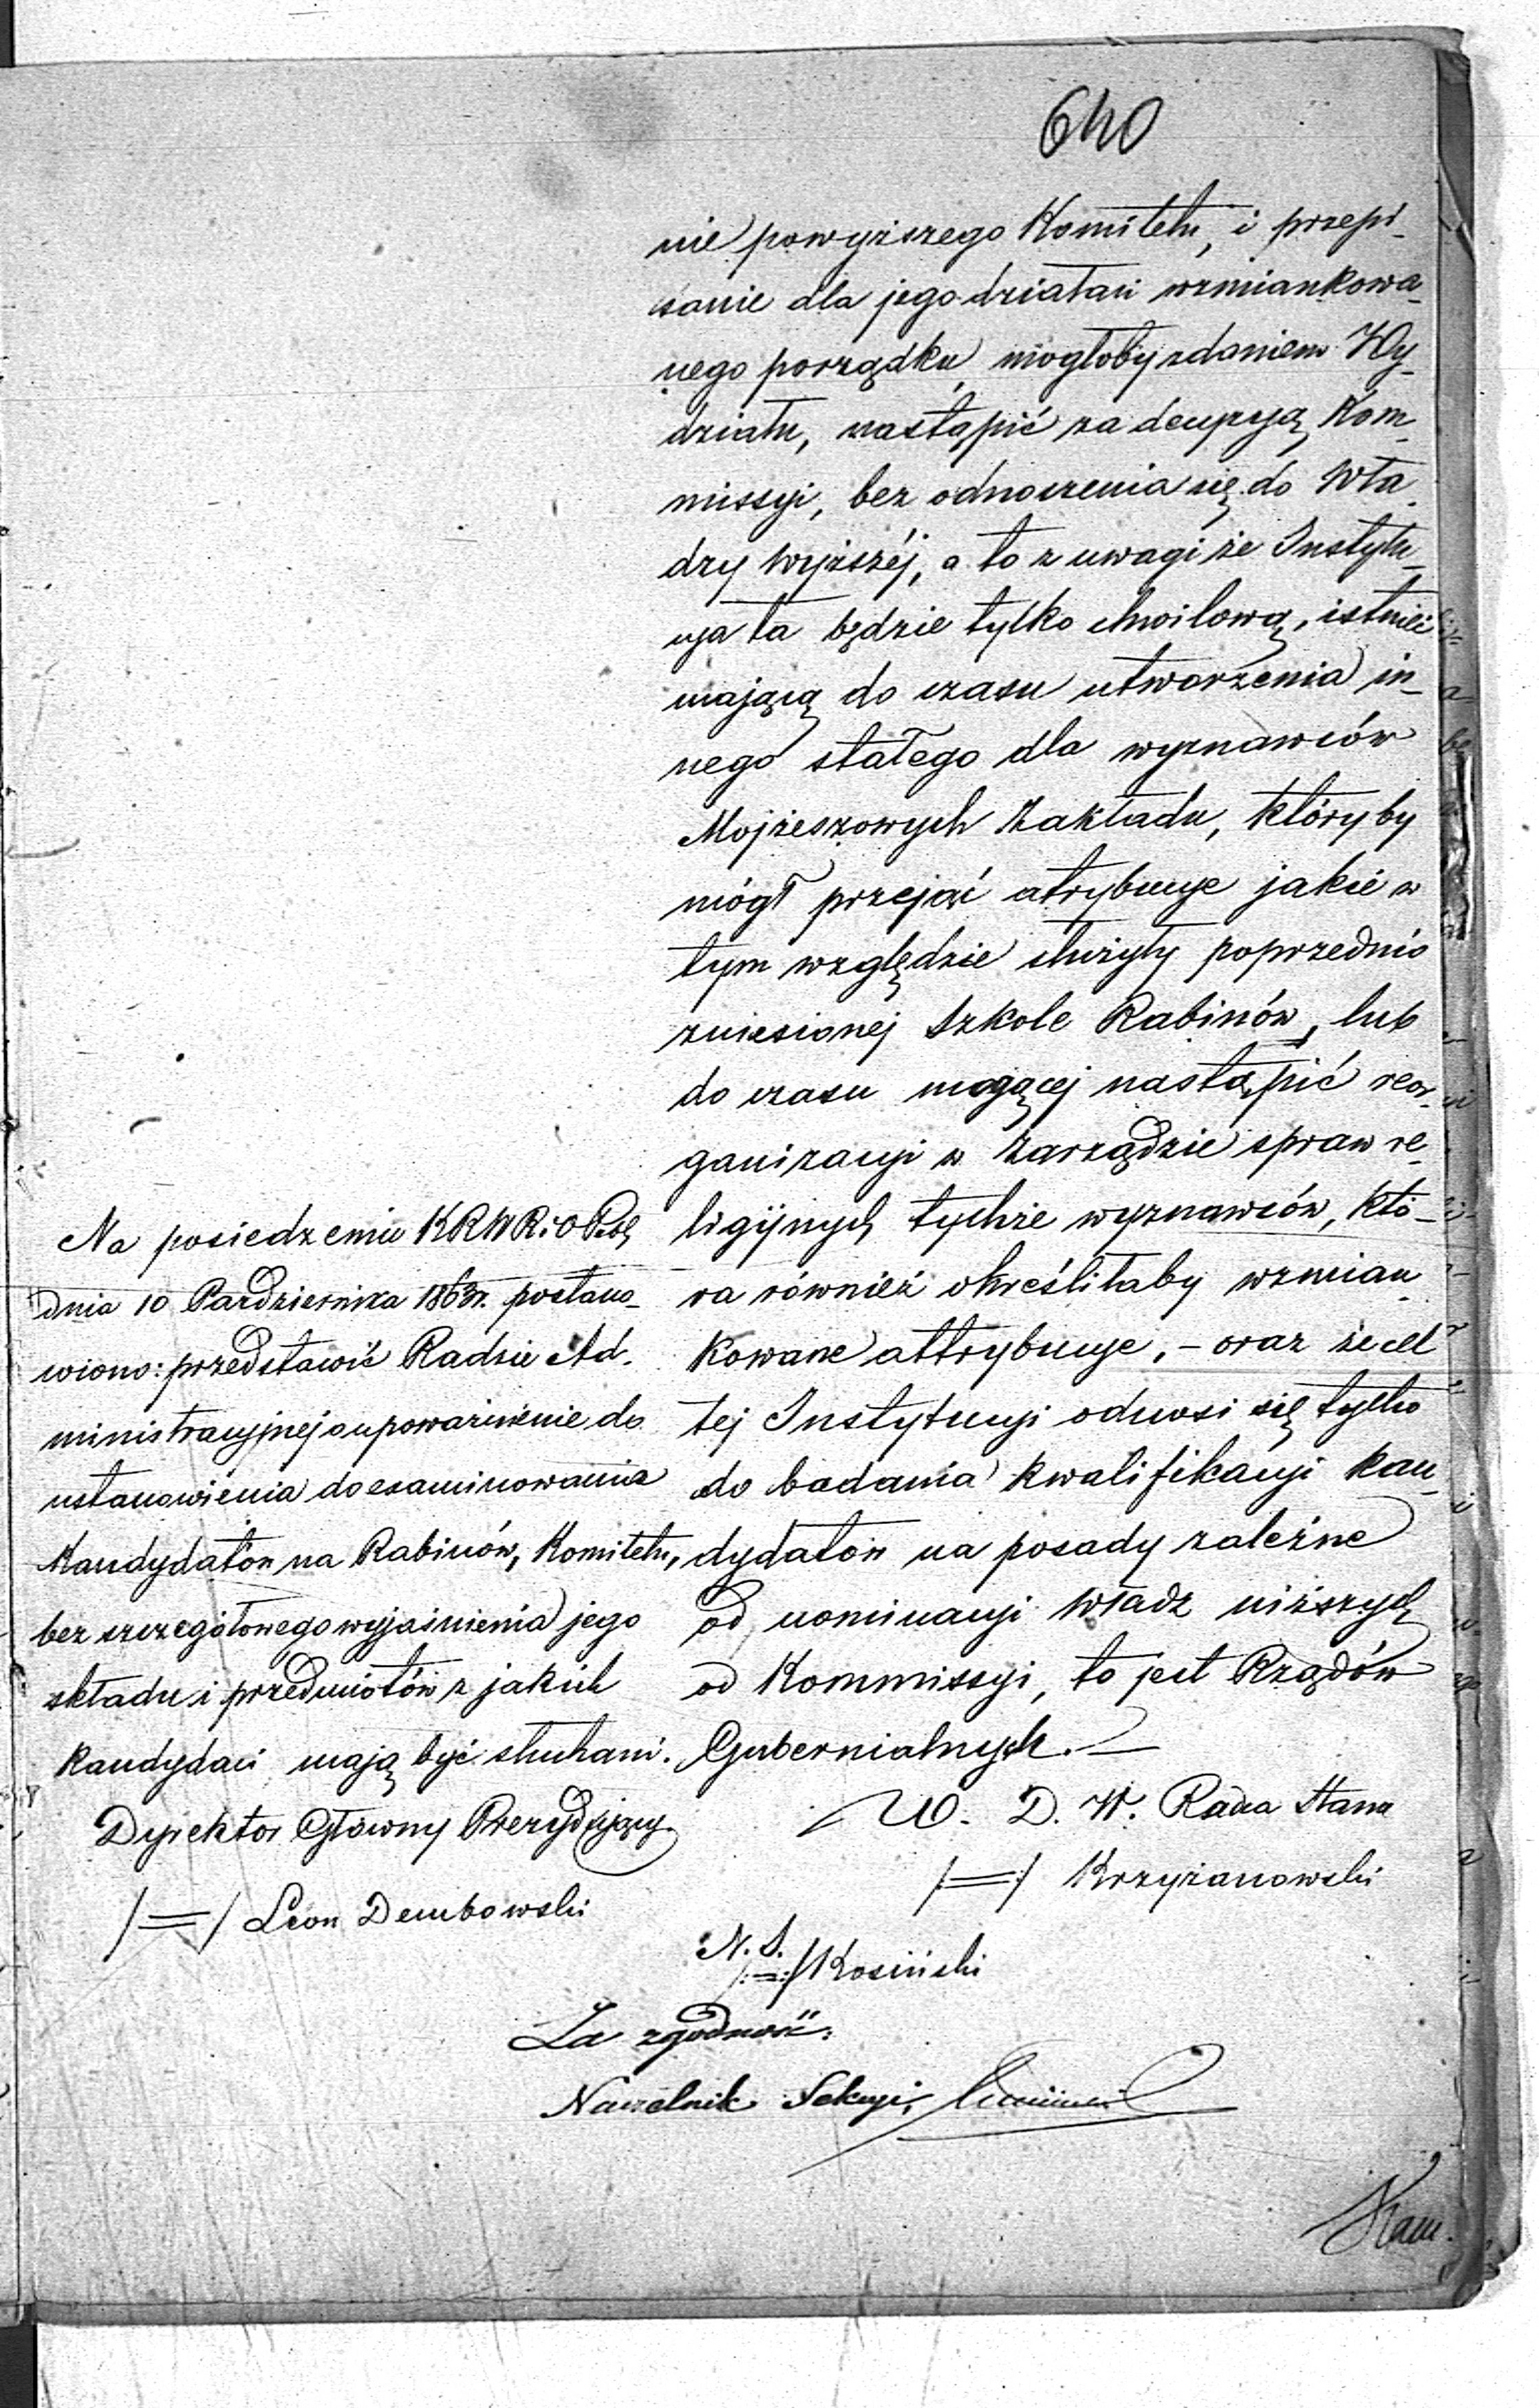 640
nie powyższego Komitetu, i przepi-
sanie dla jego działań wzmiankowa-
nego porządku, mogłoby zdaniem Wy-
działu, nastąpić za decyzyą Kom-
missyi, bez odnoszenia się do Wła-
dzy Wyższéj, a to z uwagi że Instytu-
cya ta będzie tylko chwilową, istnieć
mającą do czasu utworzenia in-
nego stałego dla wyznawców
Mojżeszowych Zakładu, któryby
mógł przejąć atrybucye jakie w
tym względzie służyły poprzednio
zniesionej Szkole Rabinów, lub
do czasu mogącej nastąpić reor-
ganizacyi w Zarządzie spraw re-
ligijnych tychże wyznawców, któ-
ra również określiłaby wzmian-
kowane attrybucye, - oraz że cel
tej Instytucyi odnosi się tylko
do badania kwalifikacyi kan-
dydatów na posady zależne
od nominacyi Władz niższych
od Kommissyi, to jest Rządów
Gubernialnych. —
W. D. W. Radca Stanu
/=/ Krzyżanowski
N. S.
/:=:/ Kosiński
Na posiedzeniu KRWR i OP
dnia 10 Października 1863 r. postano-
wiono: przedstawić Radzie Ad-
ministracyjnej o upoważnienie do
ustanowienia do examinowania
Kandydatów na Rabinów, Komitetu,
bez szczegółowego wyjaśnienia jego
składu i przedmiotów z jakich
kandydaci mają być słuchani.
Dyrektor Główny Prezydujący
/=/ Leon Dembowski
Za zgodność:
Naczelnik Sekcyi,